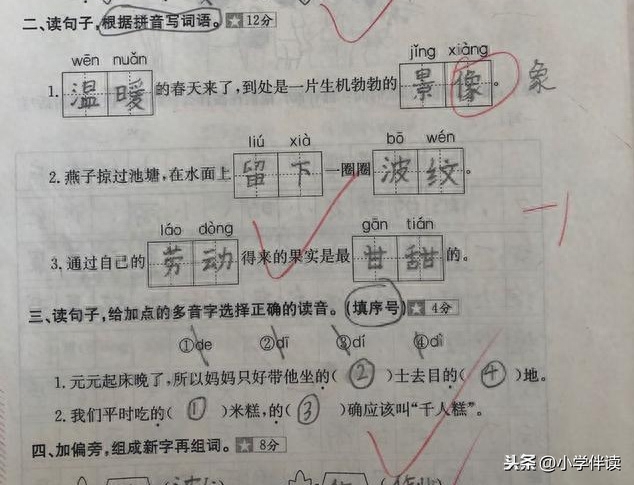 二、读句子,根据拼音写词语。★ 12分
wēn nuǎn jǐng xiàng
1. 温暖的春天来了,到处是一片生机勃勃的景像。 象
liú xià bō wén
2. 燕子掠过池塘,在水面上留下一圈圈波纹。
-1
láo dòng gān tián
3. 通过自己的劳动得来的果实是最甘甜的。
三、读句子,给加点的多音字选择正确的读音。(填序号) ★ 4分
①de ②dī ③dí ④dì
1. 元元起床晚了,所以妈妈只好带他坐的( ② )士去目的( ④ )地。
2. 我们平时吃的( ① )米糕,的( ③ )确应该叫“千人糕”。
四、加偏旁,组成新字再组词。★ 8分
头条 @小学伴读